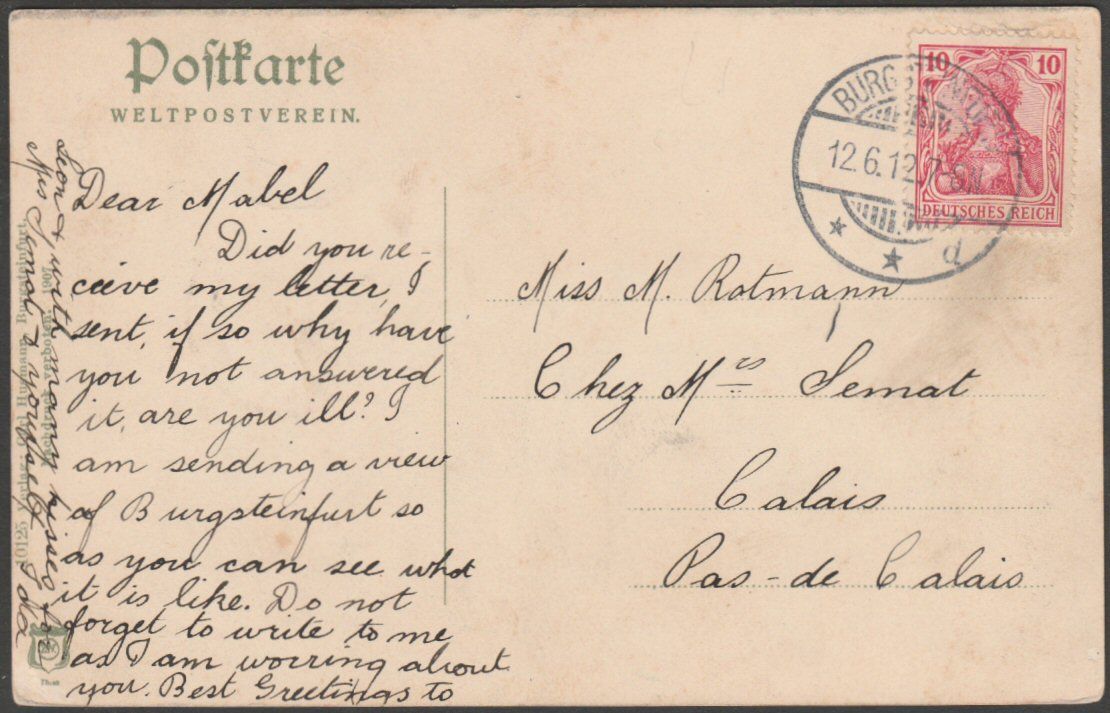 Postkarte
WELTPOSTVEREIN.
Dear Mabel
Did you re-
ceive my letter, I
sent, if so why have
you not answered
it, are you ill? I
am sending a view
of Burgsteinfurt so
as you can see what
it is like. Do not
forget to write to me
as I am worring about
you. Best Greetings to
Leon & with many kisses for
Mrs Semat & yourself Ida
10125 Verlag: Burgsteinfurt.
verboten. 1907
Miss M. Rotmann
Chez Mrs Semat
Calais
Pas-de Calais
10 10
DEUTSCHES REICH
BURGSTEINFURT
12.6.12.7-8N
d